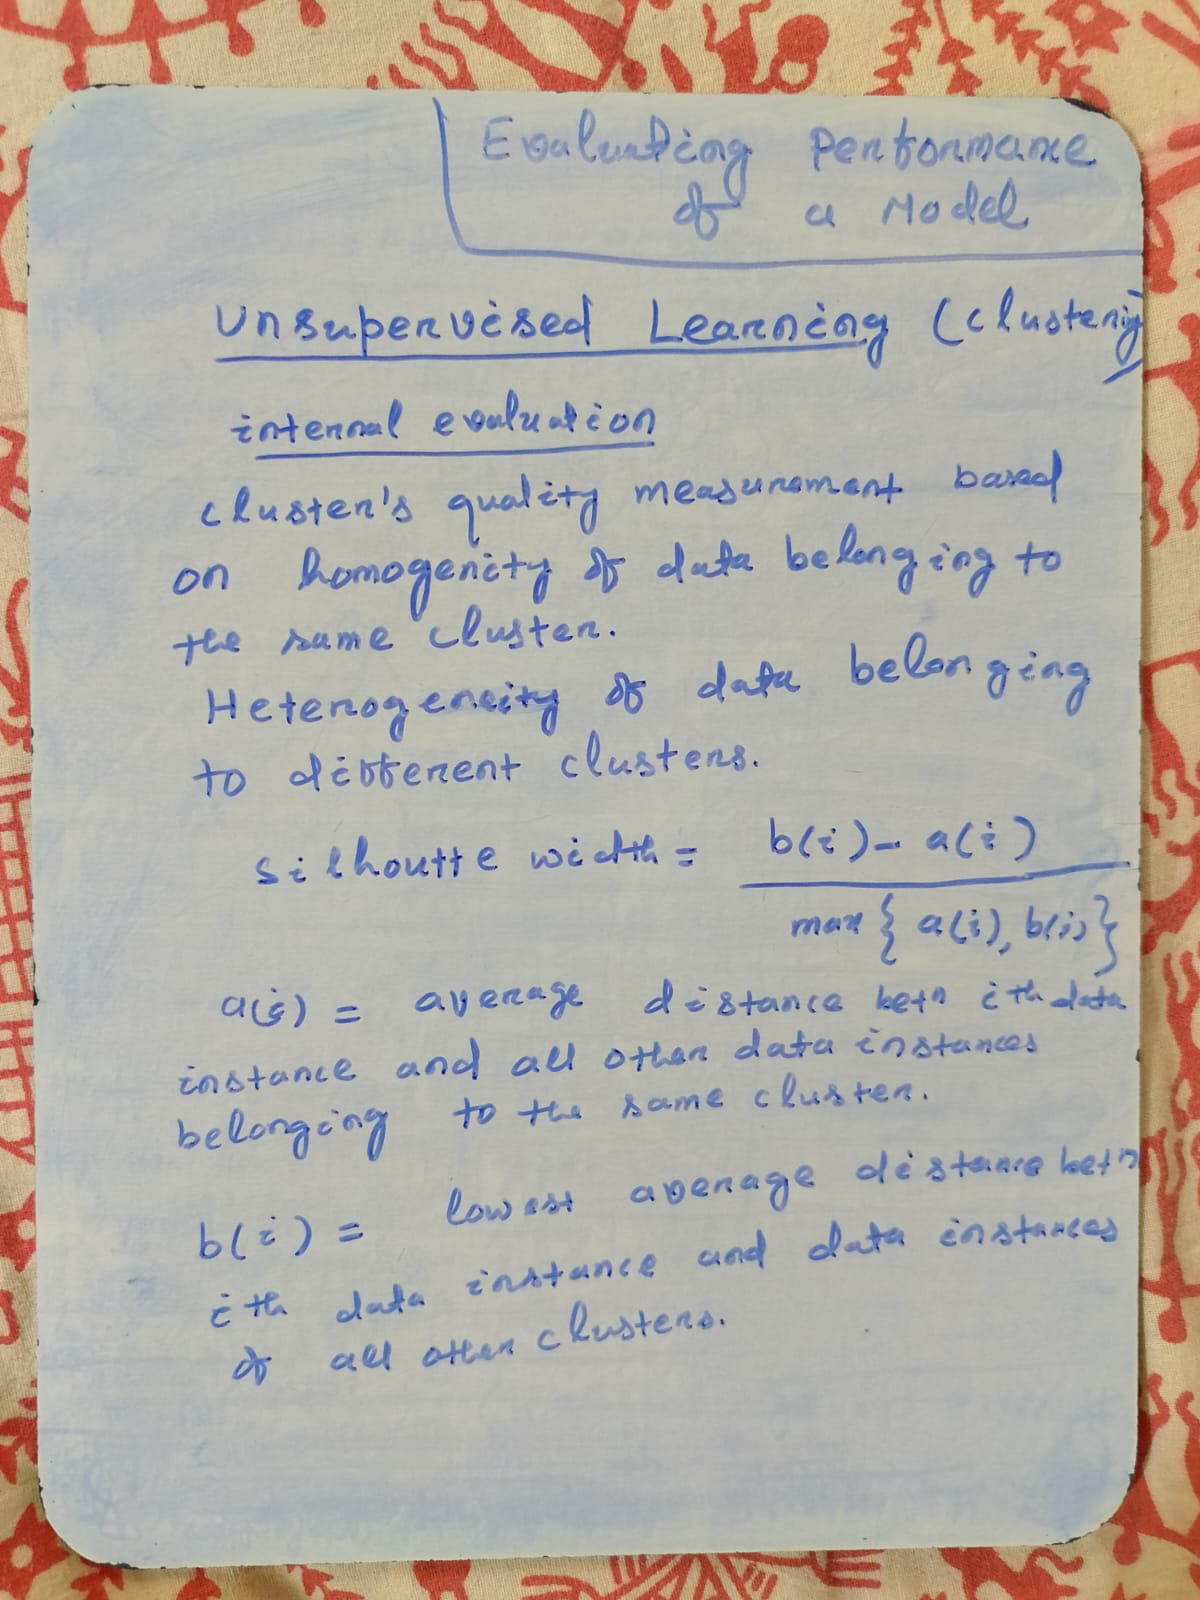 Evaluating Performance
of a Model
Unsupervised Learning (clustering)
internal evaluation
cluster's quality measurement based
on homogenity of data belonging to
the same cluster.
Heterogeneity of data belonging
to different clusters.
silhoutte width = b(i) - a(i)
max { a(i), b(i) }
a(i) = average distance betn ith data
instance and all other data instances
belonging to the same cluster.
b(i) = lowest average distance betn
ith data instance and data instances
of all other clusters.